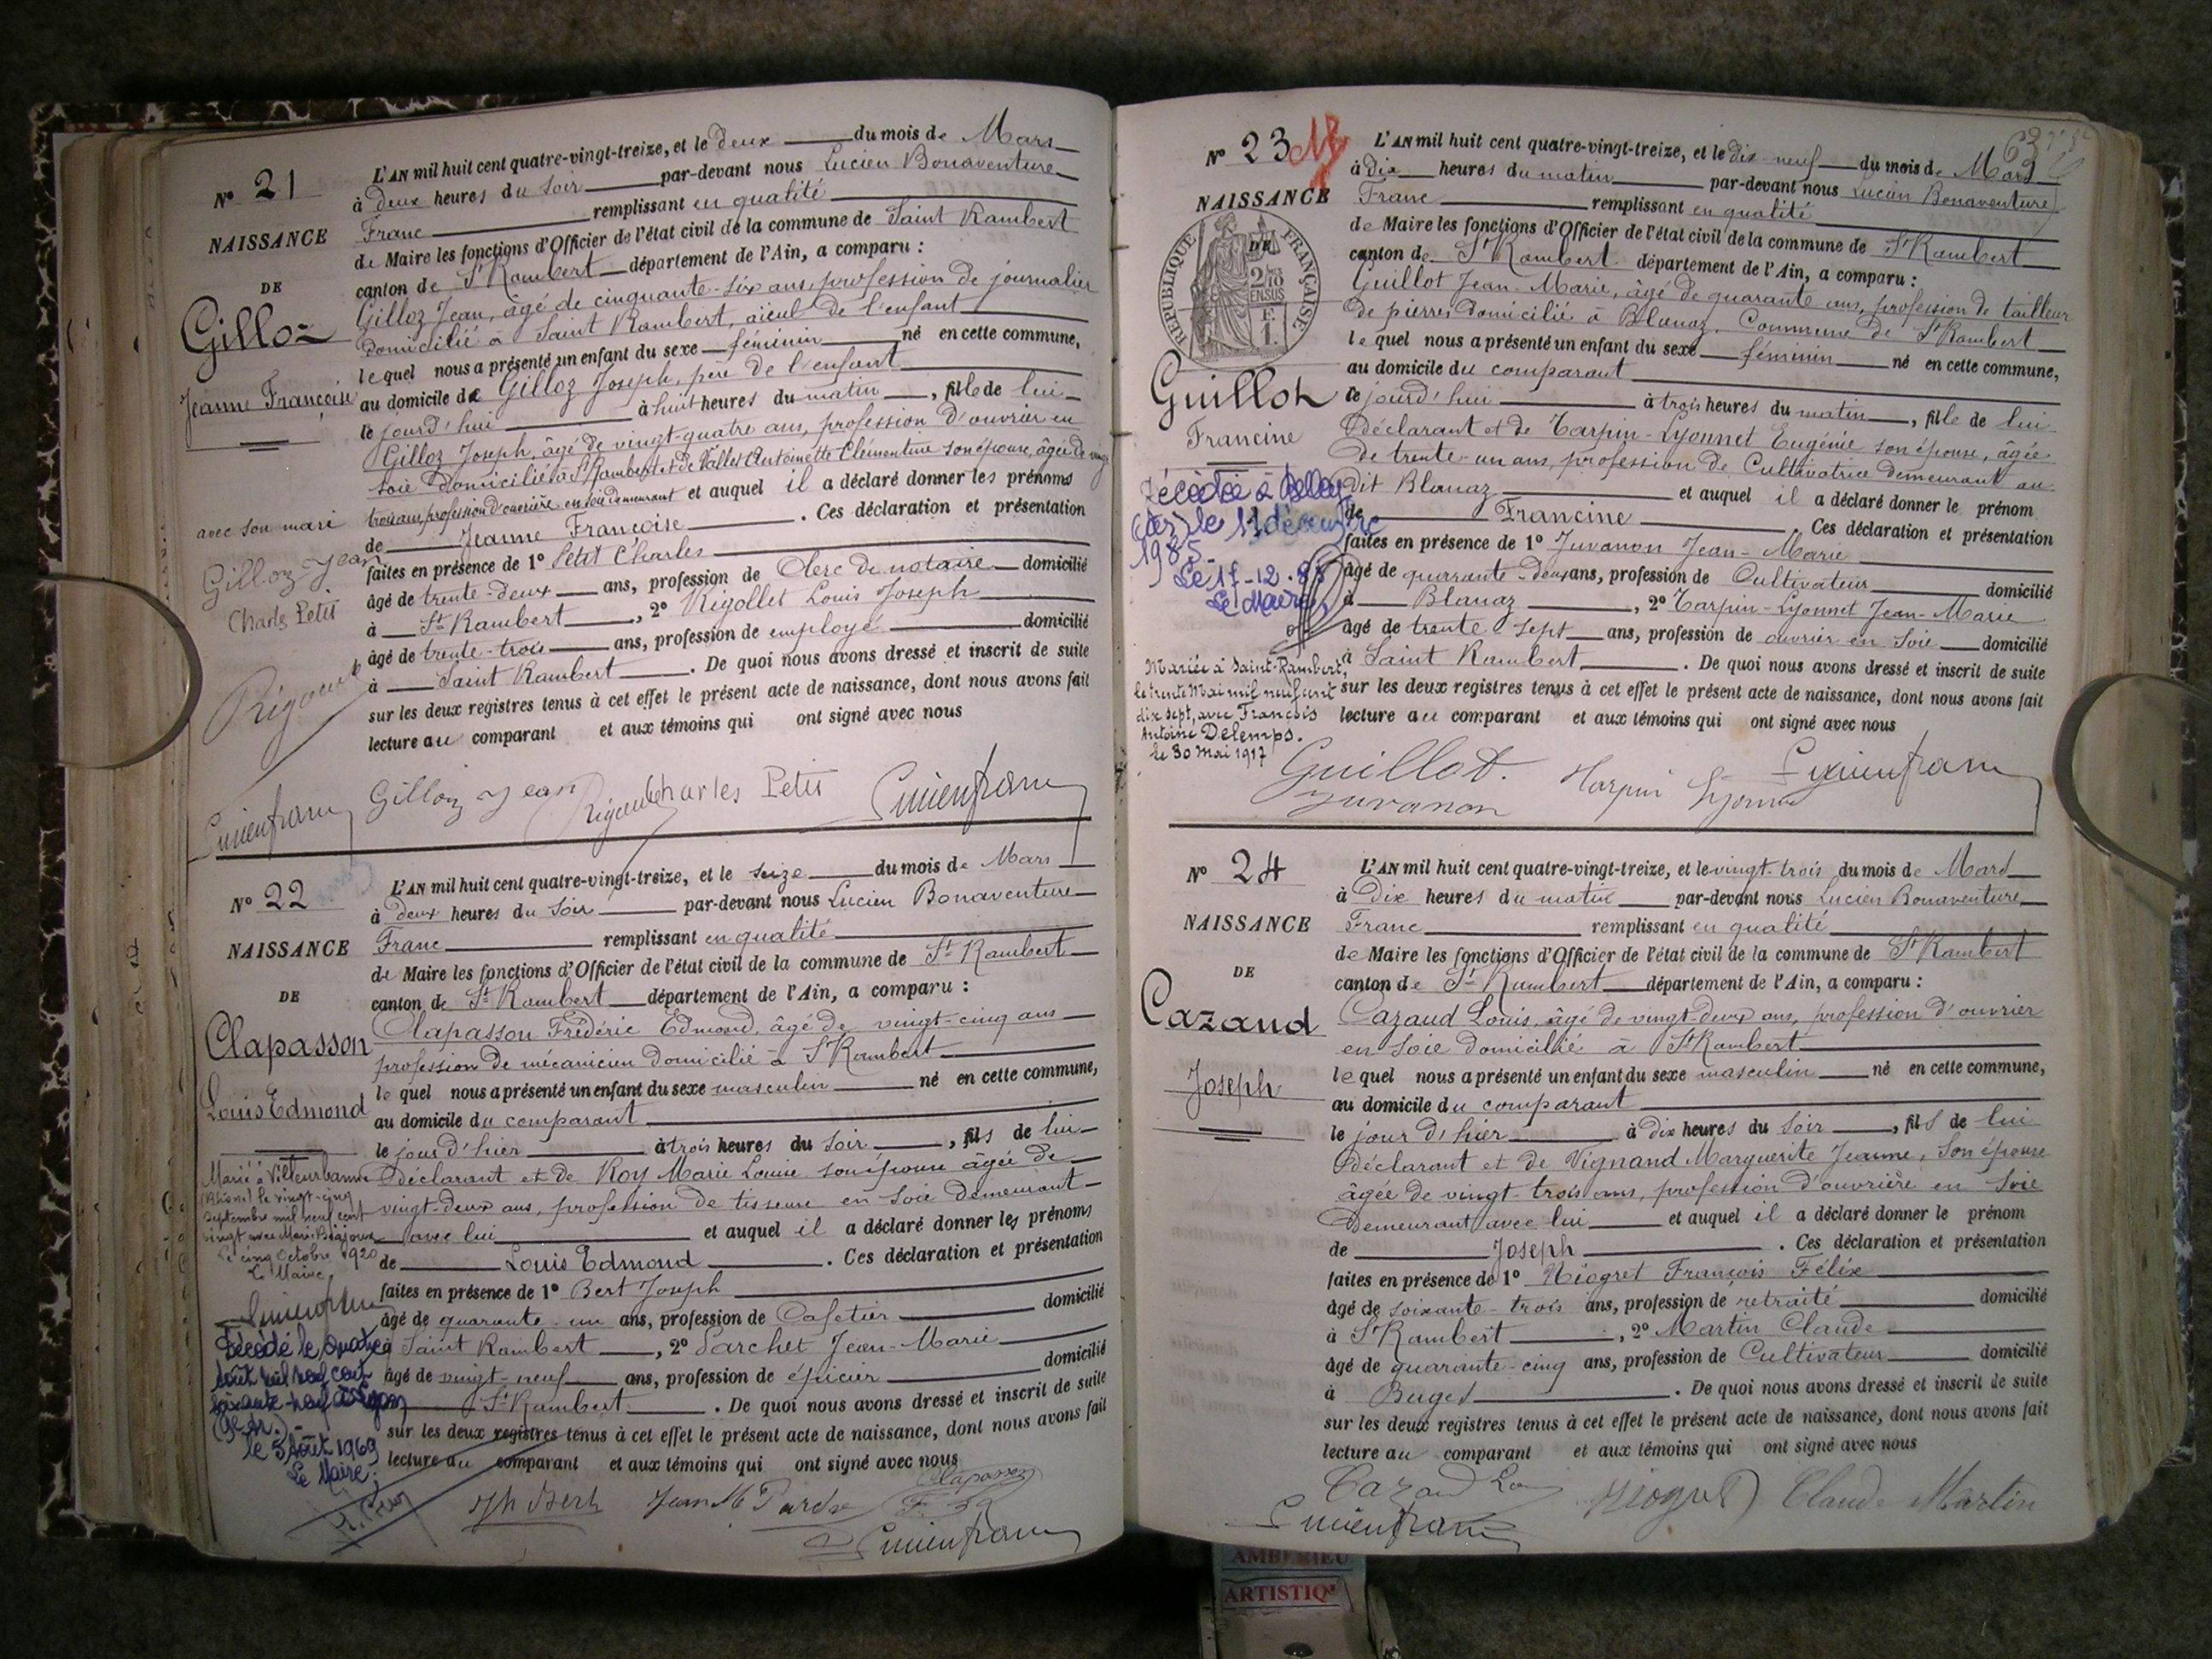 N° 21
NAISSANCE
DE
Gilloz
Jeanne Françoise
L'AN mil huit cent quatre-vingt-treize, et le deux du mois de Mars
à deux heures du soir par-devant nous Lucien Bonaventure
Franc remplissant en qualité
de Maire les fonctions d'Officier de l'état civil de la commune de Saint Rambert
canton de St Rambert département de l'Ain, a comparu :
Gilloz Jean, âgé de cinquante-six ans, profession de journalier
domicilié à Saint Rambert, aïeul de l'enfant
lequel nous a présenté un enfant du sexe féminin né en cette commune,
au domicile de Gilloz Joseph, père de l'enfant
le jourd'hui à huit heures du matin, fille de lui
Gilloz Joseph, âgé de vingt-quatre ans, profession d'ouvrier en
soie domicilié à St Rambert et de Vallet Antoinette Clémentine son épouse, âgée de vingt
trois ans, profession d'ouvrière en soie demeurant et auquel il a déclaré donner les prénoms
avec son mari
de Jeanne Françoise. Ces déclaration et présentation
faites en présence de 1° Petit Charles
âgé de trente-deux ans, profession de Clerc de notaire domicilié
à St Rambert, 2° Rigollet Louis Joseph
âgé de trente-trois ans, profession de employé domicilié
à Saint Rambert. De quoi nous avons dressé et inscrit de suite
sur les deux registres tenus à cet effet le présent acte de naissance, dont nous avons fait
lecture au comparant et aux témoins qui ont signé avec nous
Gilloz Jean
Charles Petit
Gilloz Jean Charles Petit Lucien franc
Lucien franc
N° 22
NAISSANCE
DE
Clapasson
Louis Edmond
L'AN mil huit cent quatre-vingt-treize, et le seize du mois de Mars
à deux heures du soir par-devant nous Lucien Bonaventure
Franc remplissant en qualité
de Maire les fonctions d'Officier de l'état civil de la commune de St Rambert
canton de St Rambert département de l'Ain, a comparu :
Clapasson Frédéric Edmond, âgé de vingt-cinq ans
profession de mécanicien domicilié à St Rambert
lequel nous a présenté un enfant du sexe masculin né en cette commune,
au domicile du comparant
le jour d'hier à trois heures du soir, fils de lui
Déclarant et de Roy Marie Louise son épouse âgée de
vingt-deux ans, profession de tisseuse en soie demeurant
avec lui et auquel il a déclaré donner les prénoms
de Louis Edmond. Ces déclaration et présentation
faites en présence de 1° Bert Joseph
âgé de quarante-un ans, profession de Cafetier domicilié
à Saint Rambert, 2° Parchet Jean-Marie
âgé de vingt-neuf ans, profession de épicier domicilié
St Rambert. De quoi nous avons dressé et inscrit de suite
sur les deux registres tenus à cet effet le présent acte de naissance, dont nous avons fait
lecture au comparant et aux témoins qui ont signé avec nous
Marié à Villeurbanne
(Rhône) le vingt-cinq
septembre mil neuf cent
vingt avec Marie
Le cinq Octobre 1920
Le Maire
Décédé le quatre
Août mil neuf cent
soixante-neuf à Lyon
le 5 Août 1969
Le Maire
Jh Bert Clapasson
Lucien franc
N° 23
NAISSANCE
DE
RÉPUBLIQUE FRANÇAISE
Guillot
Francine
L'AN mil huit cent quatre-vingt-treize, et le dix-neuf du mois de Mars
à dix heures du matin par-devant nous Lucien Bonaventure
Franc remplissant en qualité
de Maire les fonctions d'Officier de l'état civil de la commune de St Rambert
canton de St Rambert département de l'Ain, a comparu :
Guillot Jean-Marie, âgé de quarante ans, profession de tailleur
de pierres domicilié à Blanaz, Commune de St Rambert
lequel nous a présenté un enfant du sexe féminin né en cette commune,
au domicile du comparant
le jourd'hui à trois heures du matin, fille de lui
Déclarant et de Tarpin-Lyonnet Eugénie son épouse, âgée
de trente-un ans, profession de Cultivatrice demeurant au
dit Blanaz et auquel il a déclaré donner le prénom
de Francine. Ces déclaration et présentation
faites en présence de 1° Juvanon Jean-Marie
âgé de quarante-deux ans, profession de Cultivateur domicilié
à Blanaz, 2° Tarpin-Lyonnet Jean-Marie
âgé de trente-sept ans, profession de ouvrier en soie domicilié
à Saint Rambert. De quoi nous avons dressé et inscrit de suite
sur les deux registres tenus à cet effet le présent acte de naissance, dont nous avons fait
lecture au comparant et aux témoins qui ont signé avec nous
Décédée à Belley
(Ain) le 11 décembre
1985
Le 17-12-85
Le Maire
Mariée à Saint-Rambert,
le trente Mai mil neuf cent
dix sept, avec François
Antoine Delemps.
le 30 Mai 1917
Guillot. Lucien franc
Juvanon
N° 24
NAISSANCE
DE
Cazaud
Joseph
L'AN mil huit cent quatre-vingt-treize, et le vingt-trois du mois de Mars
à Dix heures du matin par-devant nous Lucien Bonaventure
Franc remplissant en qualité
de Maire les fonctions d'Officier de l'état civil de la commune de St Rambert
canton de St Rambert département de l'Ain, a comparu :
Cazaud Louis, âgé de vingt-deux ans, profession d'ouvrier
en soie domicilié à St Rambert
lequel nous a présenté un enfant du sexe masculin né en cette commune,
au domicile du comparant
le jour d'hier à dix heures du soir, fils de lui
Déclarant et de Vignand Marguerite Jeanne, son épouse
âgée de vingt-trois ans, profession d'ouvrière en soie
demeurant avec lui et auquel il a déclaré donner le prénom
de Joseph. Ces déclaration et présentation
faites en présence de 1° Niogret François Félix
âgé de soixante-trois ans, profession de retraité domicilié
à St Rambert, 2° Martin Claude
âgé de quarante-cinq ans, profession de Cultivateur domicilié
à Buges. De quoi nous avons dressé et inscrit de suite
sur les deux registres tenus à cet effet le présent acte de naissance, dont nous avons fait
lecture au comparant et aux témoins qui ont signé avec nous
Niogret Claude Martin
Lucien franc
AMBERIEU
ARTISTIQ